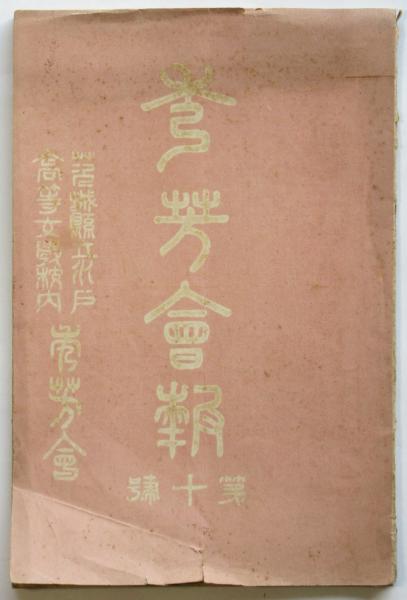 秀芳會報
第十號
茨城縣立水戸
高等女學校内
秀芳會